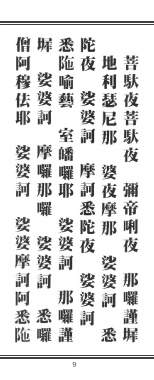 菩馱夜菩馱夜　彌帝唎夜　那囉謹墀
地利瑟尼那　婆夜摩那　娑婆訶　悉
陀夜　娑婆訶　摩訶悉陀夜　娑婆訶
悉陁喻藝　室皤囉耶　娑婆訶　那囉謹
墀　娑婆訶　摩囉那囉　娑婆訶　悉囉
僧阿穆佉耶　娑婆訶　娑婆摩訶阿　悉陁
9